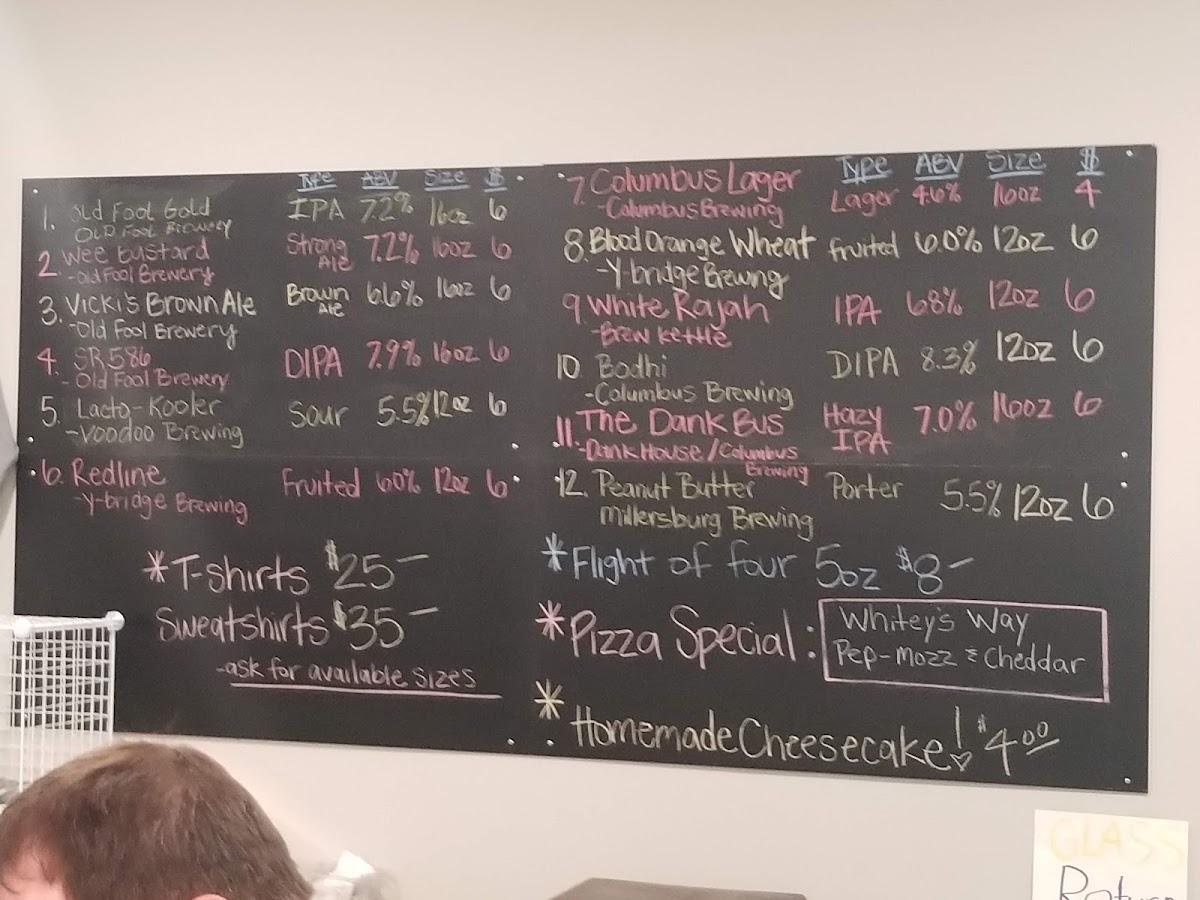 Type ABV Size $
1. Old Fool Gold IPA 7.2% 16oz 6
Old Fool Brewery
2. Wee Bustard Strong Ale 7.2% 16oz 6
-Old Fool Brewery
3. Vicki's Brown Ale Brown Ale 6.6% 16oz 6
-Old Fool Brewery
4. SR586 DIPA 7.9% 16oz 6
-Old Fool Brewery
5. Lacto-Kooler Sour 5.5% 12oz 6
-Voodoo Brewing
6. Redline Fruited 6.0% 12oz 6
-Y-bridge Brewing
*T-shirts $25-
Sweatshirts $35-
-ask for available sizes
Type ABV Size $
7. Columbus Lager Lager 4.6% 16oz 4
-Columbus Brewing
8. Blood Orange Wheat fruited 6.0% 12oz 6
-Y-bridge Brewing
9 White Rajah IPA 6.8% 12oz 6
-Brew Kettle
10 Bodhi DIPA 8.3% 12oz 6
-Columbus Brewing
11. The Dank Bus Hazy IPA 7.0% 16oz 6
-Dank House/Columbus Brewing
12. Peanut Butter Porter 5.5% 12oz 6
Millersburg Brewing
*Flight of four 5oz $8-
*Pizza Special: Whitey's Way
Pep-Mozz & Cheddar
*Homemade Cheesecake! $4.00
GLASS